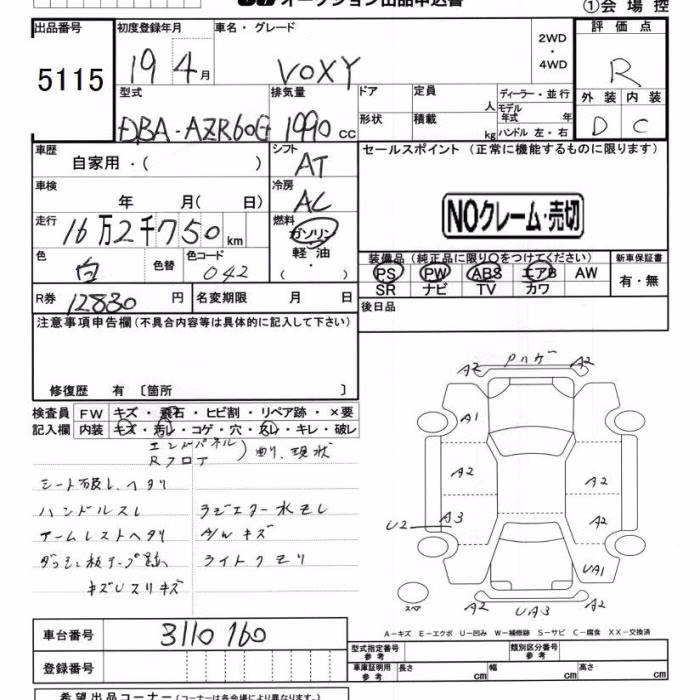 オークション出品申込書 ①会場控
出品番号 5115
初度登録年月 19 4月
車名・グレード VOXY
2WD・4WD
評価点 R
外装 内装
D C
型式 DBA-AZR60G
排気量 1990 cc
ドア
形状
定員 人
積載 kg
ディーラー・並行
モデル年式 年
ハンドル 左・右
車歴 自家用・( )
シフト AT
セールスポイント(正常に機能するものに限ります)
NOクレーム・売切
車検 年 月( 日)
冷房 AC
走行 16万2千750km
燃料 ガソリン・軽油・( )
色 白
色替
色コード 042
装備品(純正品に限り○をつけてください)
PS PW ABS エアB AW
SR ナビ TV カワ
新車保証書 有・無
R券 12830円
名変期限 月 日
後日品
注意事項申告欄(不具合内容等は具体的に記入して下さい)
修復歴 有〔箇所 〕
検査員記入欄
FW キズ・飛石・ヒビ割・リペア跡・×要
内装 キズ・汚レ・コゲ・穴・スレ・キレ・破レ
エンドパネル
Rフロア
曲り、現状
ハンドルスレ
ラジエター水モレ
アームレストヘタリ
A/Wキズ
ライトクモリ
キズUスリキズ
A2 A2
A1
A2 A2
U2 A3 A2
UA1
スペア A2 UA3 A2
A-キズ E-エクボ U-凹み W-補修跡 S-サビ C-腐食 XX-交換済
車台番号 3110160
登録番号
型式指定番号 参考
類別区分番号 参考
車庫証明用 参考 長さ cm 幅 cm 高さ cm
希望出品コーナー(コーナーは各会場により異なります。)